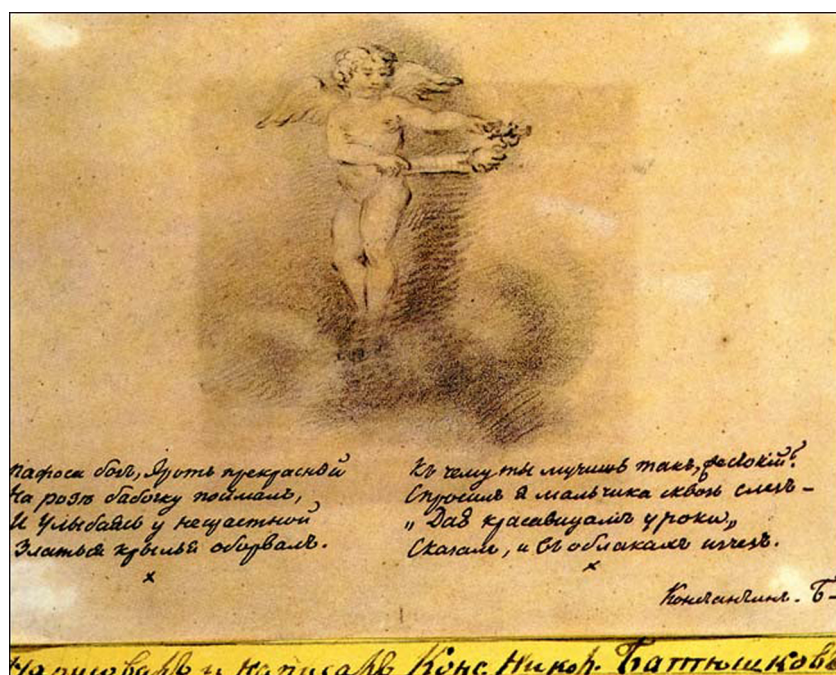 Пафоса богъ, Эротъ прекрасный
На розѣ бабочку поймалъ,
И улыбаясь у нещастной
Златыя крылья оборвалъ.
х
Къ чему ты мучишь такъ, жестокій?
Спросилъ я мальчика сквозь слезъ –
„Даю красавицамъ уроки„
Сказалъ, и въ облакахъ изчезъ.
х
Константинъ. Б–
Нарисовалъ и написалъ Конс. Никол. Батюшковъ